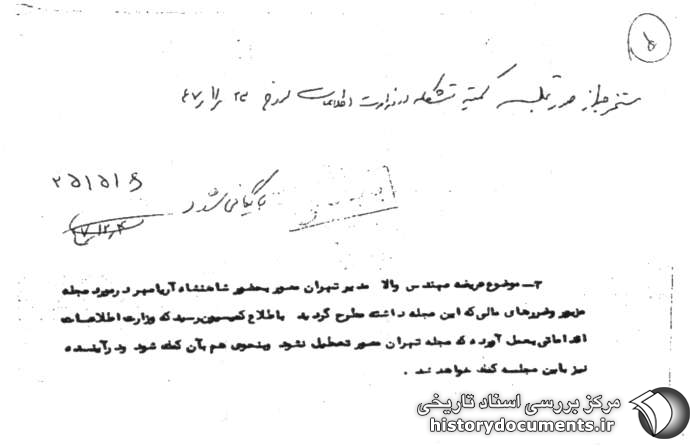 ۵
مستخرجه از صورتجلسه کمیته متشکله در وزارت اطلاعات مورخ
بایگانی شود
۳۵۱۵۱۶
۳ـ موضوع عریضه مهندس والا مدیر تهران مصور بحضور شاهنشاه آریامهر در مورد مجله
مزبور وضررهای مالی که این مجله داشته مطرح گردید باطلاع کمیسیون رسید که وزارت اطلاعات
اقداماتی بعمل آورده که مجله تهران مصور تعطیل نشود وبنحوی هم بآن کمک شود ودر آینده
نیز باین مجله کمک خواهد شد .
مرکز بررسی اسناد تاریخی
historydocuments.ir